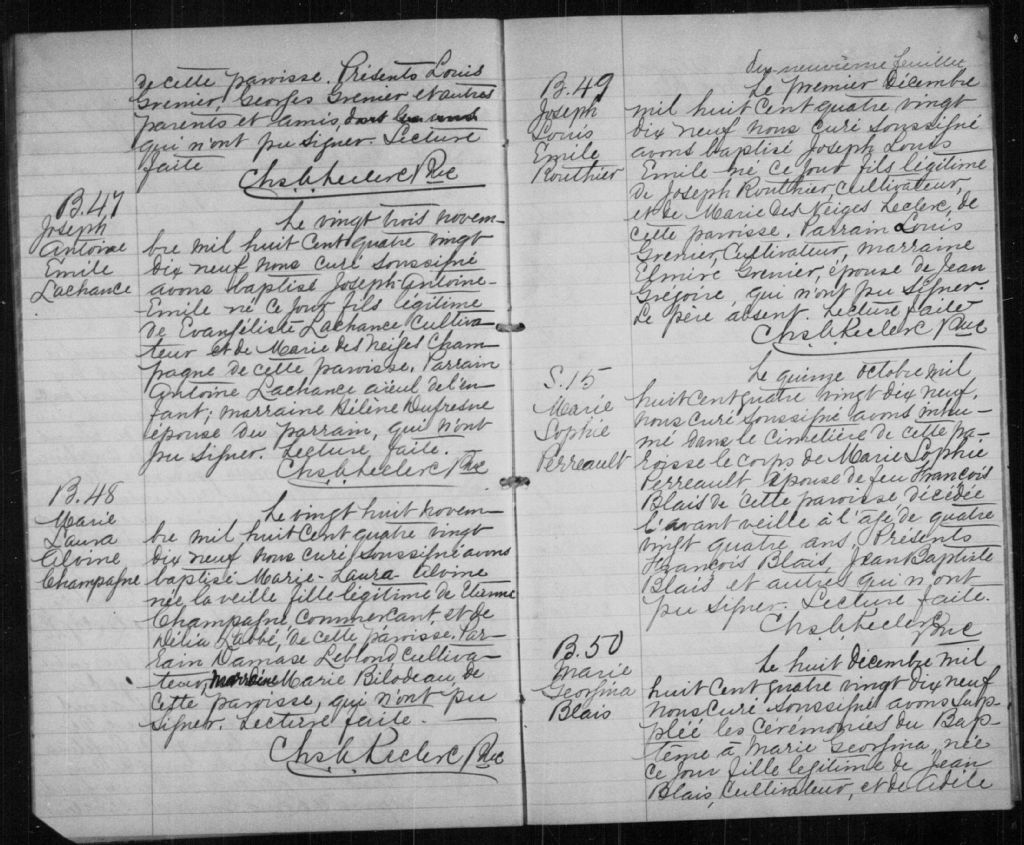 de cette paroisse. Présents Louis
Grenier, Georges Grenier et autres
parents et amis,
qui n'ont pu signer. Lecture
faite
Chs. b. Leclerc Ptre
B. 47
Joseph
Antoine
Emile
Lachance
Le vingt trois novem-
bre mil huit cent quatre vingt
dix neuf nous curé soussigné
avons baptisé Joseph-Antoine-
Emile né ce jour fils légitime
de Evangéliste Lachance cultiva-
teur et de Marie des Neiges Cham-
pagne de cette paroisse. Parrain
Antoine Lachance aïeul de l'en-
fant; marraine Hélène Dufresne
épouse du parrain, qui n'ont
pu signer. Lecture faite.
Chs. b. Leclerc Ptre
B. 48
Marie
Laura
Alvine
Champagne
Le vingt huit novem-
bre mil huit cent quatre vingt
dix neuf nous curé soussigné avons
baptisé Marie-Laura-Alvine
née la veille fille légitime de Etienne
Champagne, commerçant, et de
Délia Labbé, de cette paroisse. Par-
rain Damase Leblond cultiva-
teur, marraine Marie Bilodeau, de
cette paroisse, qui n'ont pu
signer. Lecture faite.
Chs. b. Leclerc Ptre
dix-neuvième feuillet
B. 49
Joseph
Louis
Emile
Routhier
Le premier Décembre
mil huit cent quatre vingt
dix neuf nous curé soussigné
avons baptisé Joseph Louis
Emile né ce jour fils légitime
de Joseph Routhier, cultivateur,
et de Marie des Neiges Leclerc, de
cette paroisse. Parrain Louis
Grenier, cultivateur, marraine
Elmire Grenier, épouse de Jean
Grégoire, qui n'ont pu signer.
Le père absent. Lecture faite
Chs. b. Leclerc Ptre
S. 15
Marie
Sophie
Perreault
Le quinze octobre mil
huit cent quatre vingt dix neuf,
nous curé soussigné avons inhu-
mé dans le cimetière de cette pa-
roisse le corps de Marie Sophie
Perreault épouse de feu François
Blais de cette paroisse décédée
l'avant veille à l'âge de quatre
vingt quatre ans. Présents
François Blais, Jean Baptiste
Blais et autres qui n'ont
pu signer. Lecture faite.
Chs. b. Leclerc Ptre
B. 50
Marie
Georgina
Blais
Le huit décembre mil
huit cent quatre vingt dix neuf
nous curé soussigné avons sup-
pléé les cérémonies du Bap-
tême à Marie Georgina, née
ce jour fille légitime de Jean
Blais, cultivateur, et de Adèle